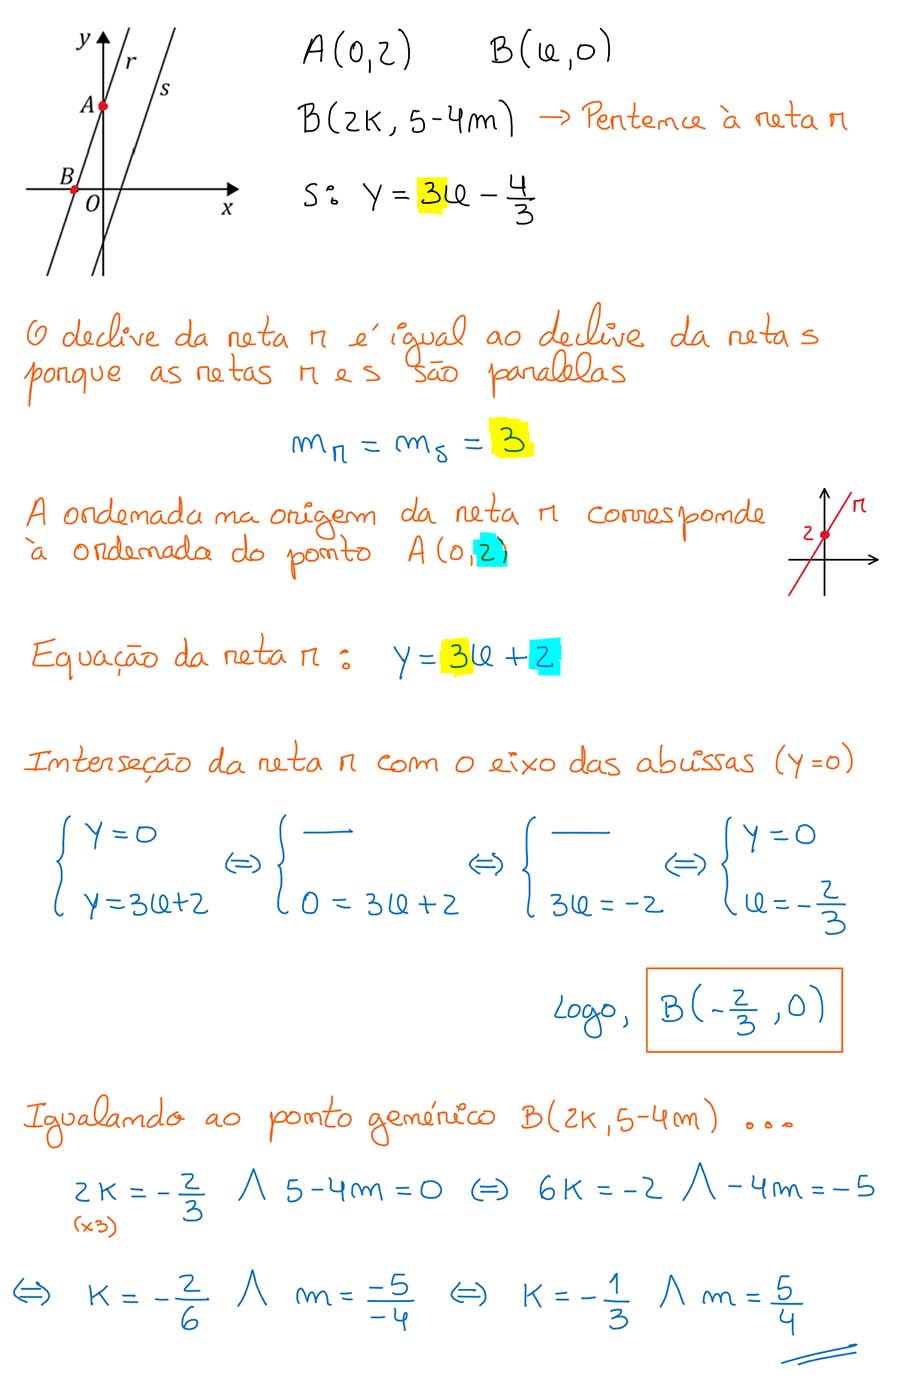 y
r
s
A
B
O
x
A(0,2) B(x,0)
B(2K, 5-4m) → Pertence à reta r
s: y = 3x - 4/3
O declive da reta r é igual ao declive da reta s
porque as retas r e s são paralelas
m_r = m_s = 3
A ordenada na origem da reta r corresponde
à ordenada do ponto A(0,2)
r
2
Equação da reta r: y = 3x + 2
Interseção da reta r com o eixo das abcissas (y=0)
{ y = 0 ⇔ { — ⇔ { — ⇔ { y = 0
{ y = 3x+2 { 0 = 3x+2 { 3x = -2 { x = -2/3
Logo, B(-2/3, 0)
Igualando ao ponto genérico B(2K, 5-4m) ...
2K = -2/3 ∧ 5-4m = 0 ⇔ 6K = -2 ∧ -4m = -5
(x3)
⇔ K = -2/6 ∧ m = -5/-4 ⇔ K = -1/3 ∧ m = 5/4